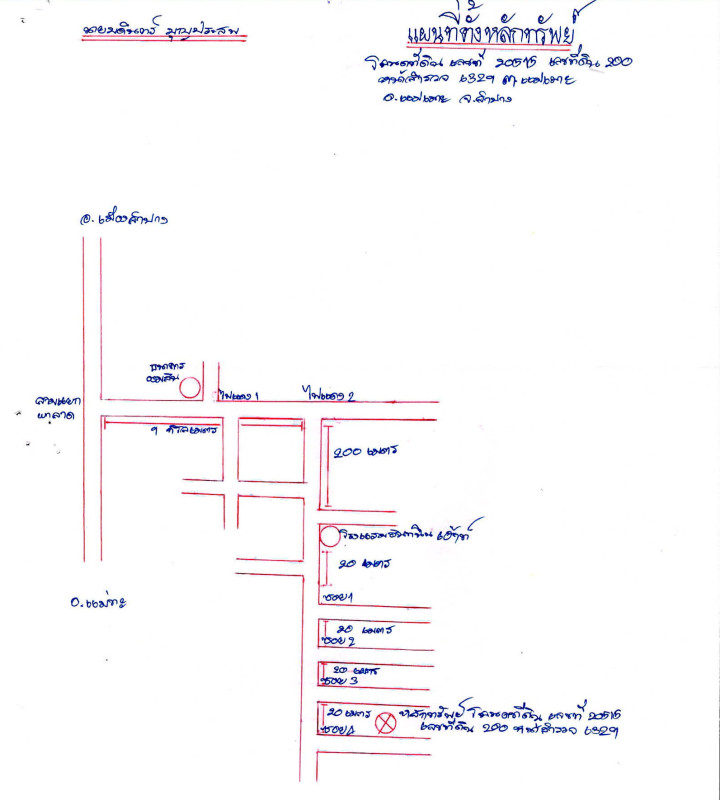 แผนที่ตั้งหลักทรัพย์
โฉนดที่ดิน เลขที่ 20515 เลขที่ดิน 200
หน้าสำรวจ 6329 ต.แม่เมาะ
อ.แม่เมาะ จ.ลำปาง
อ.เมืองลำปาง
ธนาคาร
ออมสิน
ไฟแดง 1
ไฟแดง 2
สามแยก
ผาลาด
1 กิโลเมตร
200 เมตร
20 เมตร
อ.แม่ทะ
ซอย 1
20 เมตร
ซอย 2
20 เมตร
ซอย 3
20 เมตร
ซอย 4
หลักทรัพย์ โฉนดที่ดิน เลขที่ 20515
เลขที่ดิน 200 หน้าสำรวจ 6329